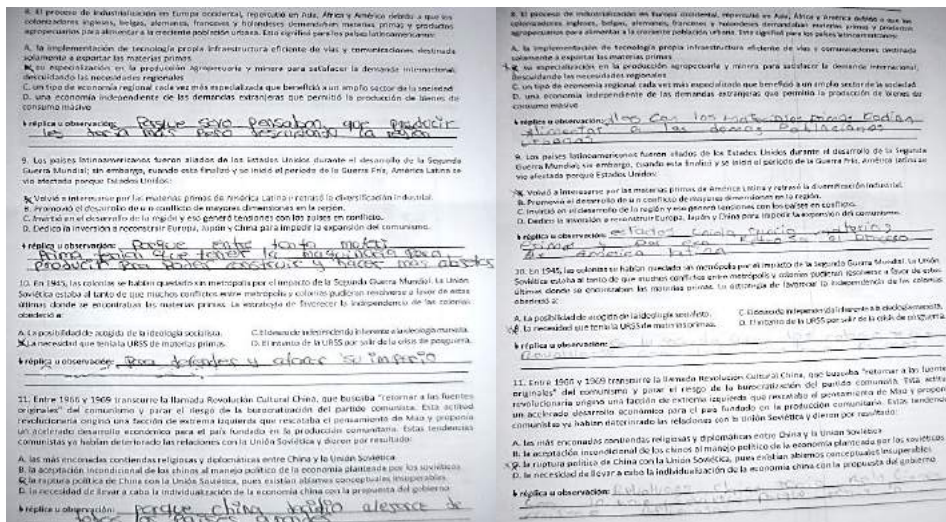 8. El proceso de industrialización en Europa occidental, repercutió en Asia, África y América debido a que los
colonizadores ingleses, belgas, alemanes, franceses y holandeses demandaban materias primas y productos
agropecuarios para alimentar a la creciente población urbana. Esto significó para los países latinoamericanos:
A. la implementación de tecnología propia infraestructura eficiente de vías y comunicaciones destinada
solamente a exportar las materias primas
su especialización en la producción agropecuaria y minera para satisfacer la demanda internacional,
descuidando las necesidades regionales
C. un tipo de economía regional cada vez más especializada que benefició a un amplio sector de la sociedad
D. una economía independiente de las demandas extranjeras que permitió la producción de bienes de
consumo masivo
réplica u observación: Porque solo pensaban que producir
les tenia mas pero descuidando la región
9. Los países latinoamericanos fueron aliados de los Estados Unidos durante el desarrollo de la Segunda
Guerra Mundial; sin embargo, cuando esta finalizó y se inició el período de la Guerra Fría, América Latina se
vio afectada porque Estados Unidos:
Volvió a interesarse por las materias primas de América Latina y retrasó la diversificación industrial.
B. Promovió el desarrollo de un conflicto de mayores dimensiones en la región.
C. Invirtió en el desarrollo de la región y eso generó tensiones con los países en conflicto.
D. Dedicó la inversión a reconstruir Europa, Japón y China para impedir la expansión del comunismo.
réplica u observación: Porque entre tanta materi
Prima tenian que tener la maquinaria para
producir para poder construir y hacer mas
10. En 1945, las colonias se habían quedado sin metrópolis por el impacto de la Segunda Guerra Mundial. La Unión
Soviética estaba al tanto de que muchos conflictos entre metrópolis y colonias pudieran resolverse a favor de estas
últimas donde se encontraban las materias primas. La estrategia de favorecer la independencia de las colonias
obedeció a:
A. La posibilidad de acogida de la ideología socialista. C. El deseo de independencia inherente a la ideología marxista.
La necesidad que tenía la URSS de materias primas. D. El intento de la URSS por salir de la crisis de posguerra.
réplica u observación: Para defender y su imperio
11. Entre 1966 y 1969 transcurre la llamada Revolución Cultural China, que buscaba "retornar a las fuentes
originales" del comunismo y parar el riesgo de la burocratización del partido comunista. Esta actitud
revolucionaria originó una facción de extrema izquierda que rescataba el pensamiento de Mao y proponía
un acelerado desarrollo económico para el país fundado en la producción comunitaria. Estas tendencias
comunistas ya habían deteriorado las relaciones con la Unión Soviética y dieron por resultado:
A. las más enconadas contiendas religiosas y diplomáticas entre China y la Unión Soviética
B. la aceptación incondicional de los chinos al manejo político de la economía planteada por los soviéticos
la ruptura política de China con la Unión Soviética, pues existían abismos conceptuales insuperables
D. la necesidad de llevar a cabo la individualización de la economía china con la propuesta del gobierno
réplica u observación: porque china decidio alejarse de
todos los paises
8. El proceso de industrialización en Europa occidental, repercutió en Asia, África y América debido a que los
colonizadores ingleses, belgas, alemanes, franceses y holandeses demandaban materias primas y productos
agropecuarios para alimentar a la creciente población urbana. Esto significó para los países latinoamericanos:
A. la implementación de tecnología propia infraestructura eficiente de vías y comunicaciones destinada
solamente a exportar las materias primas
su especialización en la producción agropecuaria y minera para satisfacer la demanda internacional,
descuidando las necesidades regionales
C. un tipo de economía regional cada vez más especializada que benefició a un amplio sector de la sociedad
D. una economía independiente de las demandas extranjeras que permitió la producción de bienes de
consumo masivo
réplica u observación: con los materias primas podian
alimentar a las demas poblaciones
urbanas
9. Los países latinoamericanos fueron aliados de los Estados Unidos durante el desarrollo de la Segunda
Guerra Mundial; sin embargo, cuando esta finalizó y se inició el período de la Guerra Fría, América Latina se
vio afectada porque Estados Unidos:
Volvió a interesarse por las materias primas de América Latina y retrasó la diversificación industrial.
B. Promovió el desarrollo de un conflicto de mayores dimensiones en la región.
C. Invirtió en el desarrollo de la región y eso generó tensiones con los países en conflicto.
D. Dedicó la inversión a reconstruir Europa, Japón y China para impedir la expansión del comunismo.
réplica u observación: estados unidos materias
primas y por eso el proceso
de America
10. En 1945, las colonias se habían quedado sin metrópolis por el impacto de la Segunda Guerra Mundial. La Unión
Soviética estaba al tanto de que muchos conflictos entre metrópolis y colonias pudieran resolverse a favor de estas
últimas donde se encontraban las materias primas. La estrategia de favorecer la independencia de las colonias
obedeció a:
A. La posibilidad de acogida de la ideología socialista. C. El deseo de independencia inherente a la ideología marxista.
La necesidad que tenía la URSS de materias primas. D. El intento de la URSS por salir de la crisis de posguerra.
réplica u observación:
11. Entre 1966 y 1969 transcurre la llamada Revolución Cultural China, que buscaba "retornar a las fuentes
originales" del comunismo y parar el riesgo de la burocratización del partido comunista. Esta actitud
revolucionaria originó una facción de extrema izquierda que rescataba el pensamiento de Mao y proponía
un acelerado desarrollo económico para el país fundado en la producción comunitaria. Estas tendencias
comunistas ya habían deteriorado las relaciones con la Unión Soviética y dieron por resultado:
A. las más enconadas contiendas religiosas y diplomáticas entre China y la Unión Soviética
B. la aceptación incondicional de los chinos al manejo político de la economía planteada por los soviéticos
la ruptura política de China con la Unión Soviética, pues existían abismos conceptuales insuperables
D. la necesidad de llevar a cabo la individualización de la economía china con la propuesta del gobierno
réplica u observación: